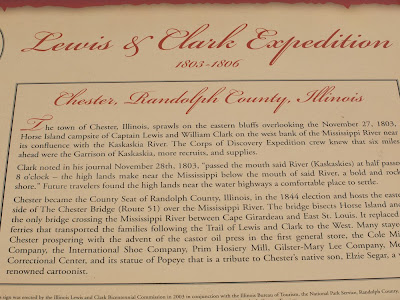 Lewis & Clark Expedition
1803-1806
Chester, Randolph County, Illinois
The town of Chester, Illinois, sprawls on the eastern bluffs overlooking the November 27, 1803,
Horse Island campsite of Captain Lewis and William Clark on the west bank of the Mississippi River near
its confluence with the Kaskaskia River. The Corps of Discovery Expedition crew knew that six miles
ahead were the Garrison of Kaskaskia, more recruits, and supplies.
Clark noted in his journal November 28th, 1803, "passed the mouth said River (Kaskaskies) at half passed
8 o'clock – the high lands make near the Mississippi below the mouth of said River, a bold and rock
shore." Future travelers found the high lands near the water highways a comfortable place to settle.
Chester became the County Seat of Randolph County, Illinois, in the 1844 election and hosts the east
side of The Chester Bridge (Route 51) over the Mississippi River. The bridge bisects Horse Island and
the only bridge crossing the Mississippi River between Cape Girardeau and East St. Louis. It replaced
ferries that transported the families following the Trail of Lewis and Clark to the West. Many stayed
Chester prospering with the advent of the castor oil press in the first general store, the Cole Mil
Company, the International Shoe Company, Prim Hosiery Mill, Gilster-Mary Lee Company, Me
Correctional Center, and its statue of Popeye that is a tribute to Chester's native son, Elzie Segar, a w
renowned cartoonist.
sign was erected by the Illinois Lewis and Clark Bicentennial Commission in 2003 in conjunction with the Illinois Bureau of Tourism, the National Park Service, Randolph County,